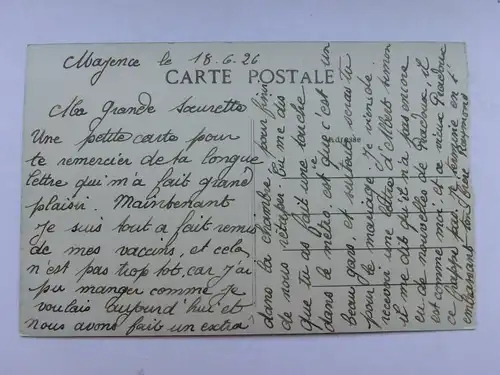 Mayence le 18.6.26
CARTE POSTALE
Adresse
Ma grande sœurette
Une petite carte pour
te remercier de ta longue
lettre qui m'a fait grand
plaisir. Maintenant
je suis tout à fait remis
de mes vaccins, et cela
n'est pas trop tôt, car j'ai
pu manger comme je
voulais aujourd'hui et
nous avons fait un extra
dans la chambre pour finir
de nous rétaper. Tu me dis
que tu as fait une touche
dans le métro, c'est un
beau gars, et surtout seras tu
pour le mariage. Je viens de
recevoir une lettre d'Albert Simon
il me dit qu'il n'a pas encore
eu de nouvelles de il
est comme moi, et ce vieux
ce pas. Je termine en t'
embrassant ton frère Raymond